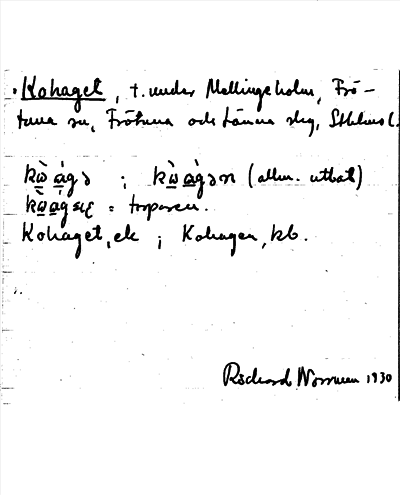 Kohaget, t. under Mellingeholm, Frö-
tuna sn, Frötuna och Länna slg, Sthlms l.
kẁ ágə ; kẁ ágən (allm. uttal)
Kohaget, ek ; Kohagen, kb.
Richard Norrman 1930